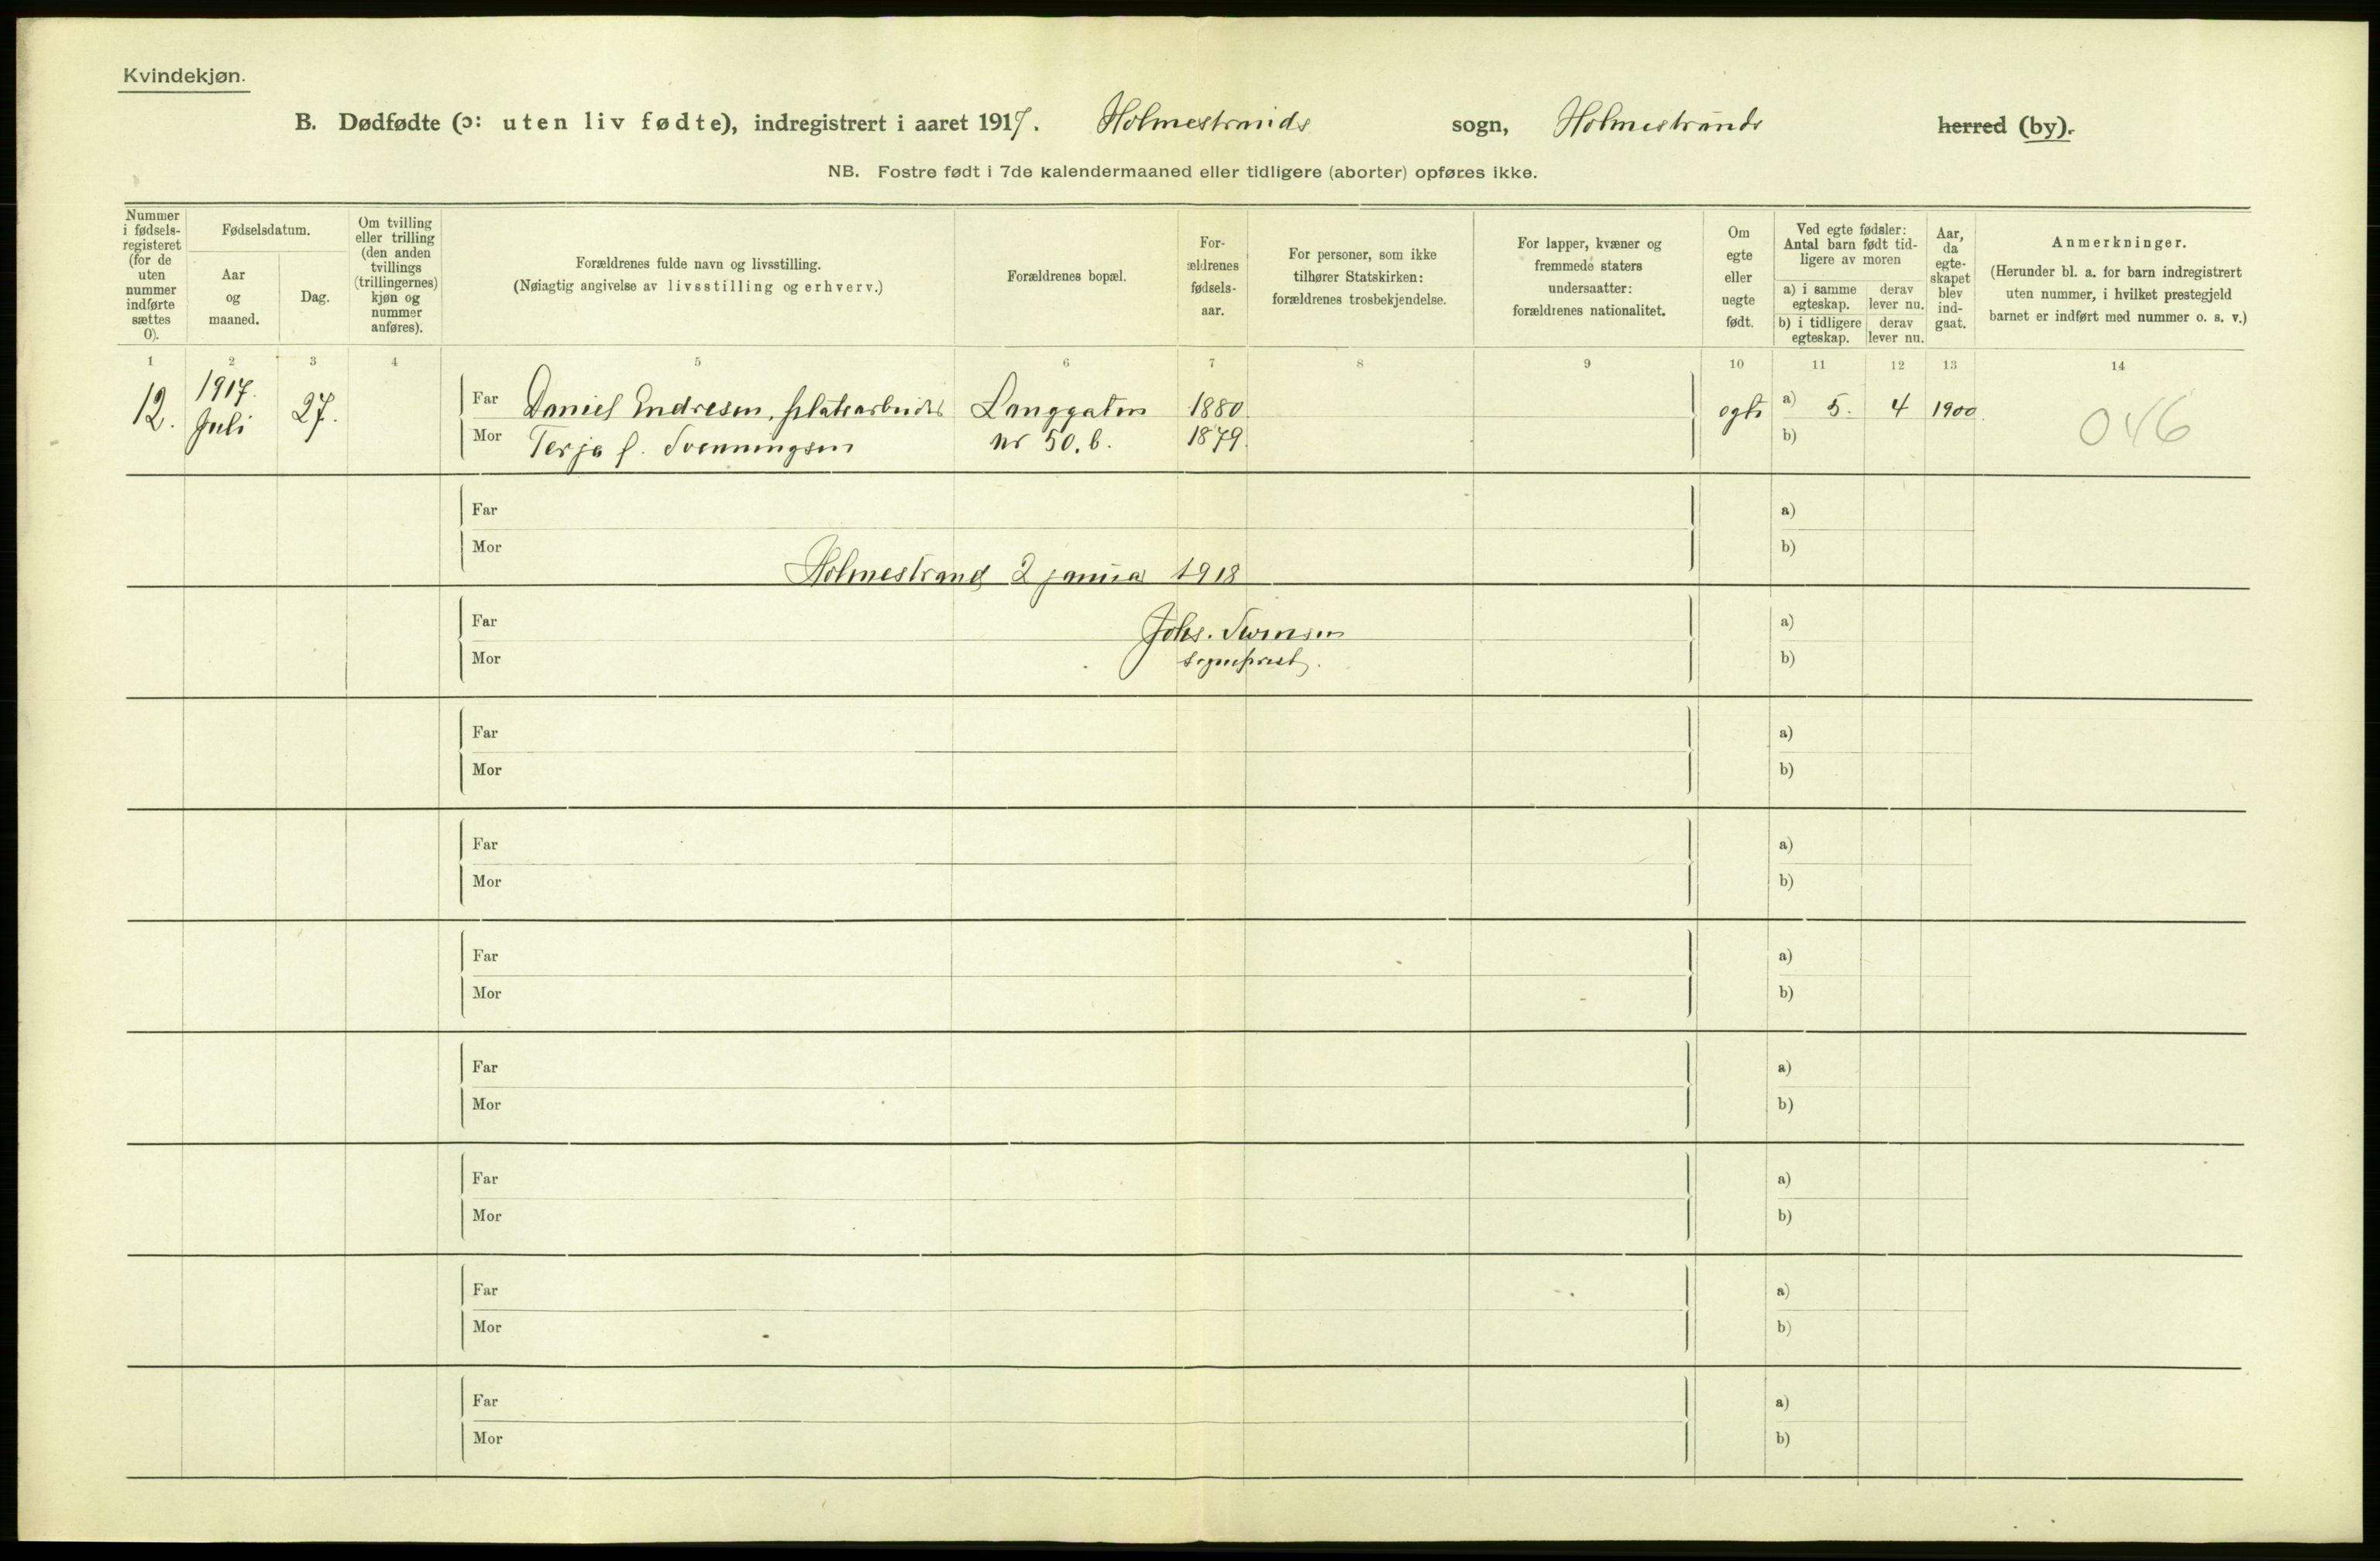 Kvindekjøn.
B. Dødfødte (ɔ: uten liv fødte), indregistrert i aaret 1917. Holmestrands sogn, Holmestrands herred (by).
NB. Fostre født i 7de kalendermaaned eller tidligere (aborter) opføres ikke.
Nummer i fødsels-registeret (for de uten nummer indførte sættes 0).
Fødselsdatum.
Aar og maaned.
Dag.
Om tvilling eller trilling (den anden tvillings (trillingernes) kjøn og nummer anføres).
Forældrenes fulde navn og livsstilling.
(Nøiagtig angivelse av livsstilling og erhverv.)
Forældrenes bopæl.
For-ældrenes fødsels-aar.
For personer, som ikke tilhører Statskirken: forældrenes trosbekjendelse.
For lapper, kvæner og fremmede staters undersaatter: forældrenes nationalitet.
Om egte eller uegte født.
Ved egte fødsler: Antal barn født tid-ligere av moren
a) i samme egteskap.
derav lever nu.
b) i tidligere egteskap.
derav lever nu.
Aar, da egte-skapet blev ind-gaat.
Anmerkninger.
(Herunder bl. a. for barn indregistrert uten nummer, i hvilket prestegjeld barnet er indført med nummer o. s. v.)
1 2 3 4 5 6 7 8 9 10 11 12 13 14
12. 1917. Juli 27.
Far Daniel Endresen, platearbeider Langgaten 1880. egte a) 5. 4 1900.
Mor Terja f. Svenningsen nr 50.b. 1879. b)
046
Far a)
Mor b)
Holmestrand 2 januar 1918
Far a)
Johs. Svensen
Mor b)
sogneprest.
Far a)
Mor b)
Far a)
Mor b)
Far a)
Mor b)
Far a)
Mor b)
Far a)
Mor b)
Far a)
Mor b)
Far a)
Mor b)